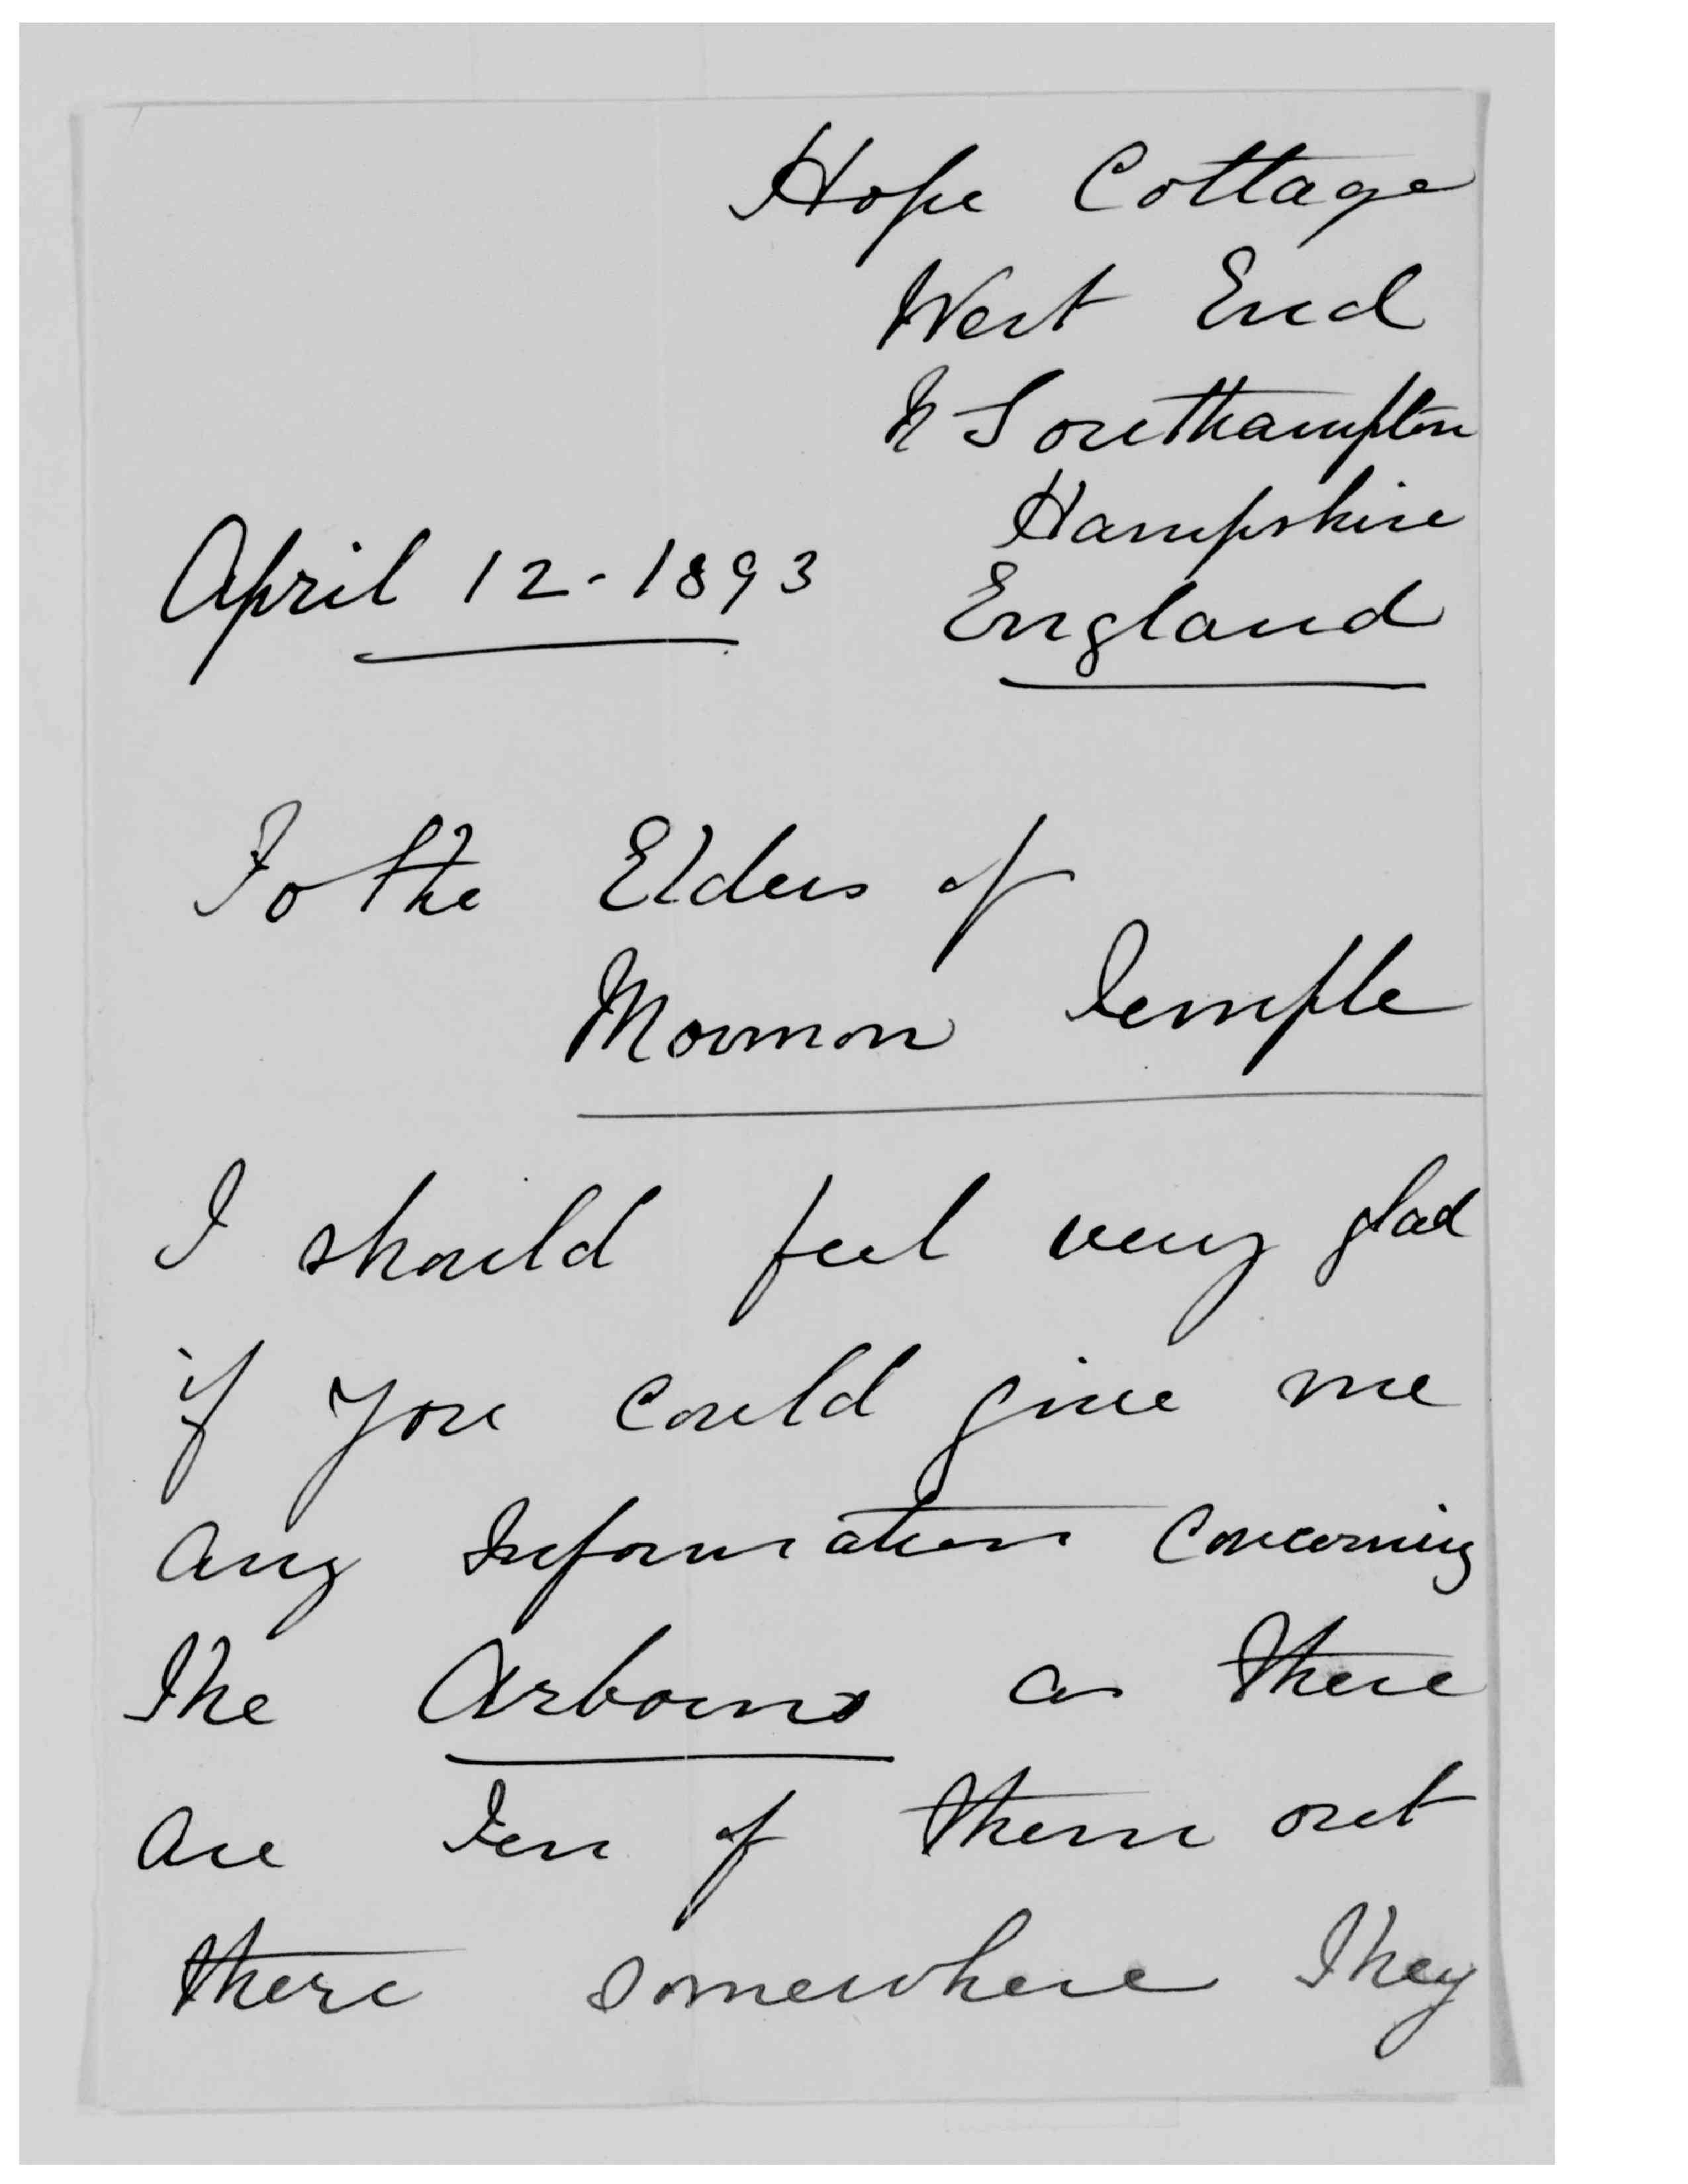 Hope Cottage
West End
Nr Southampton
Hampshire
April 12 - 1893
England
To the Elders of
Mormon Temple
I should feel very glad
if you could give me
any Information Concerning
The Arbourns as there
are Ten of them out
there somewhere They